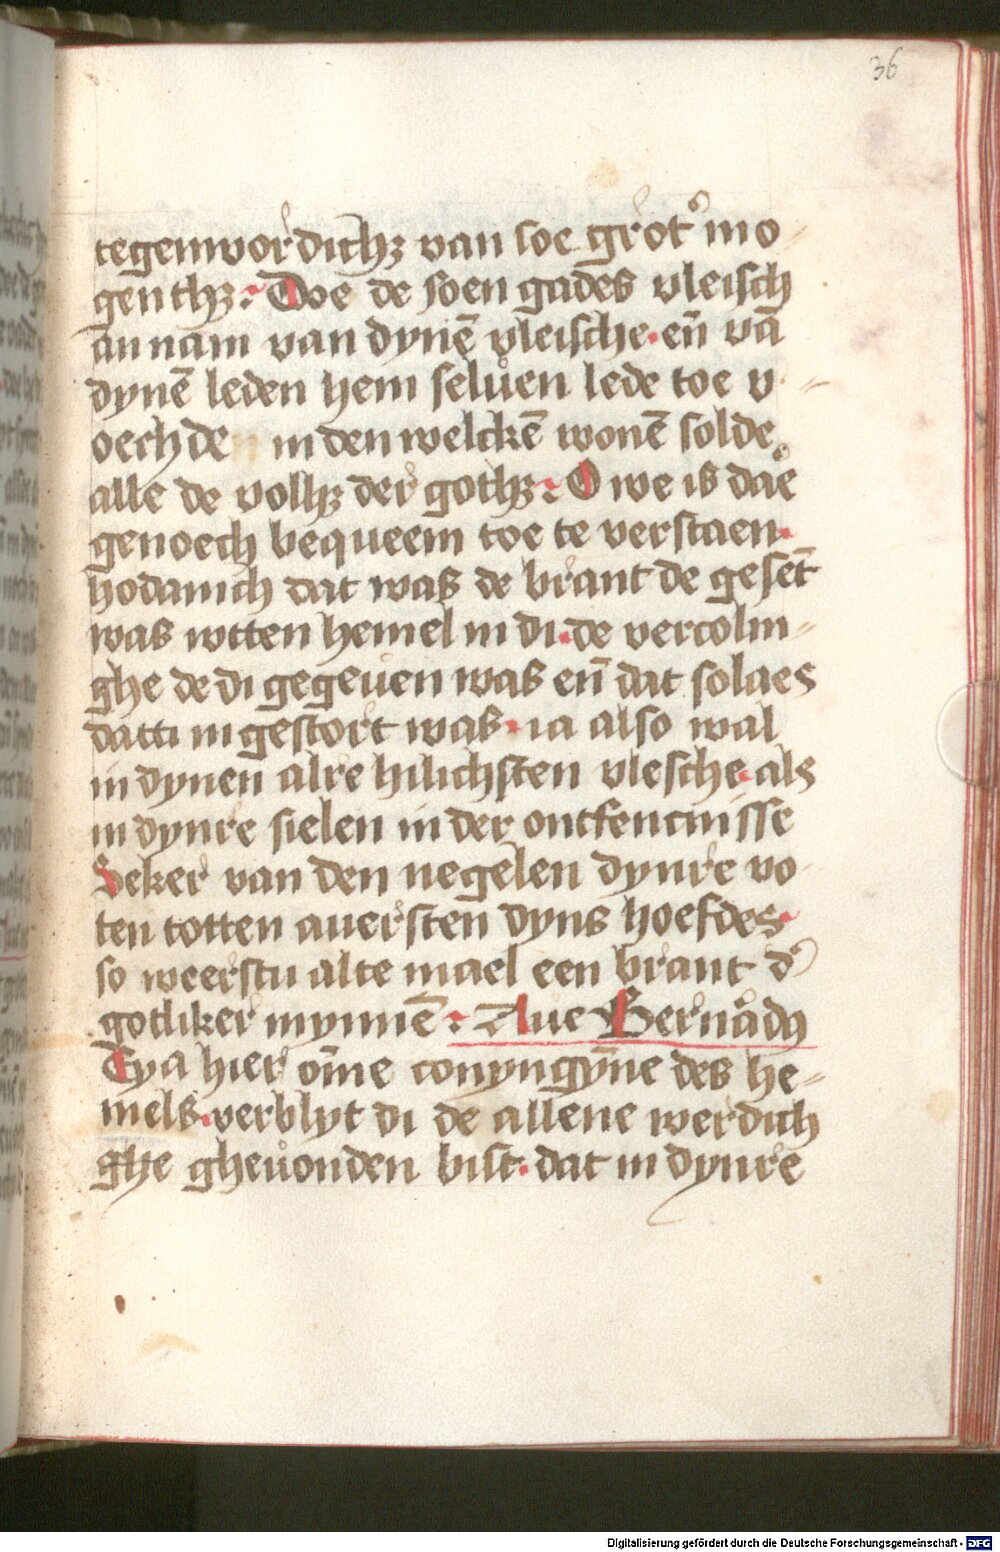 36
tegenwordichꝫ van soe grot᷒ mo
genthꝫ: Doe de soen gades vleisch
an nam van dynē vleische· en̄ vā
dynē leden hem seluen lede toe v
oechde in den welckē wonē solde
alle de vollꝫ der gothꝫ: O we is dae
genoech bequeem toe te verstaen·
hodanich dat was de brant de geset̄
was wtten hemel in di· de vercolin
ghe de di gegeuen was en̄ dat solaes
datti in gestort was· ia also wal
in dynen alre hilichsten vlesche· als
in dynre sielen in der ontfencnisse
Seker van den negelen dynre vo
ten totten auersten dyns hoefdes·
so weerstu alte mael een brant d᷒
gotliker mynnē: Aue Bernardꝰ
Eya hier om̄e conyngyn̄e des he
mels· verblyt di de allene werdich
ghe gheuonden bist· dat in dynre
Digitalisierung gefördert durch die Deutsche Forschungsgemeinschaft - DFG